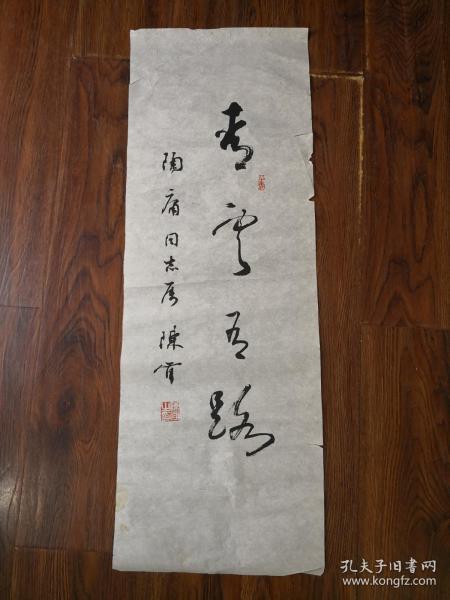 青云有路
陶庸同志属 陈
孔夫子旧书网
www.kongfz.com